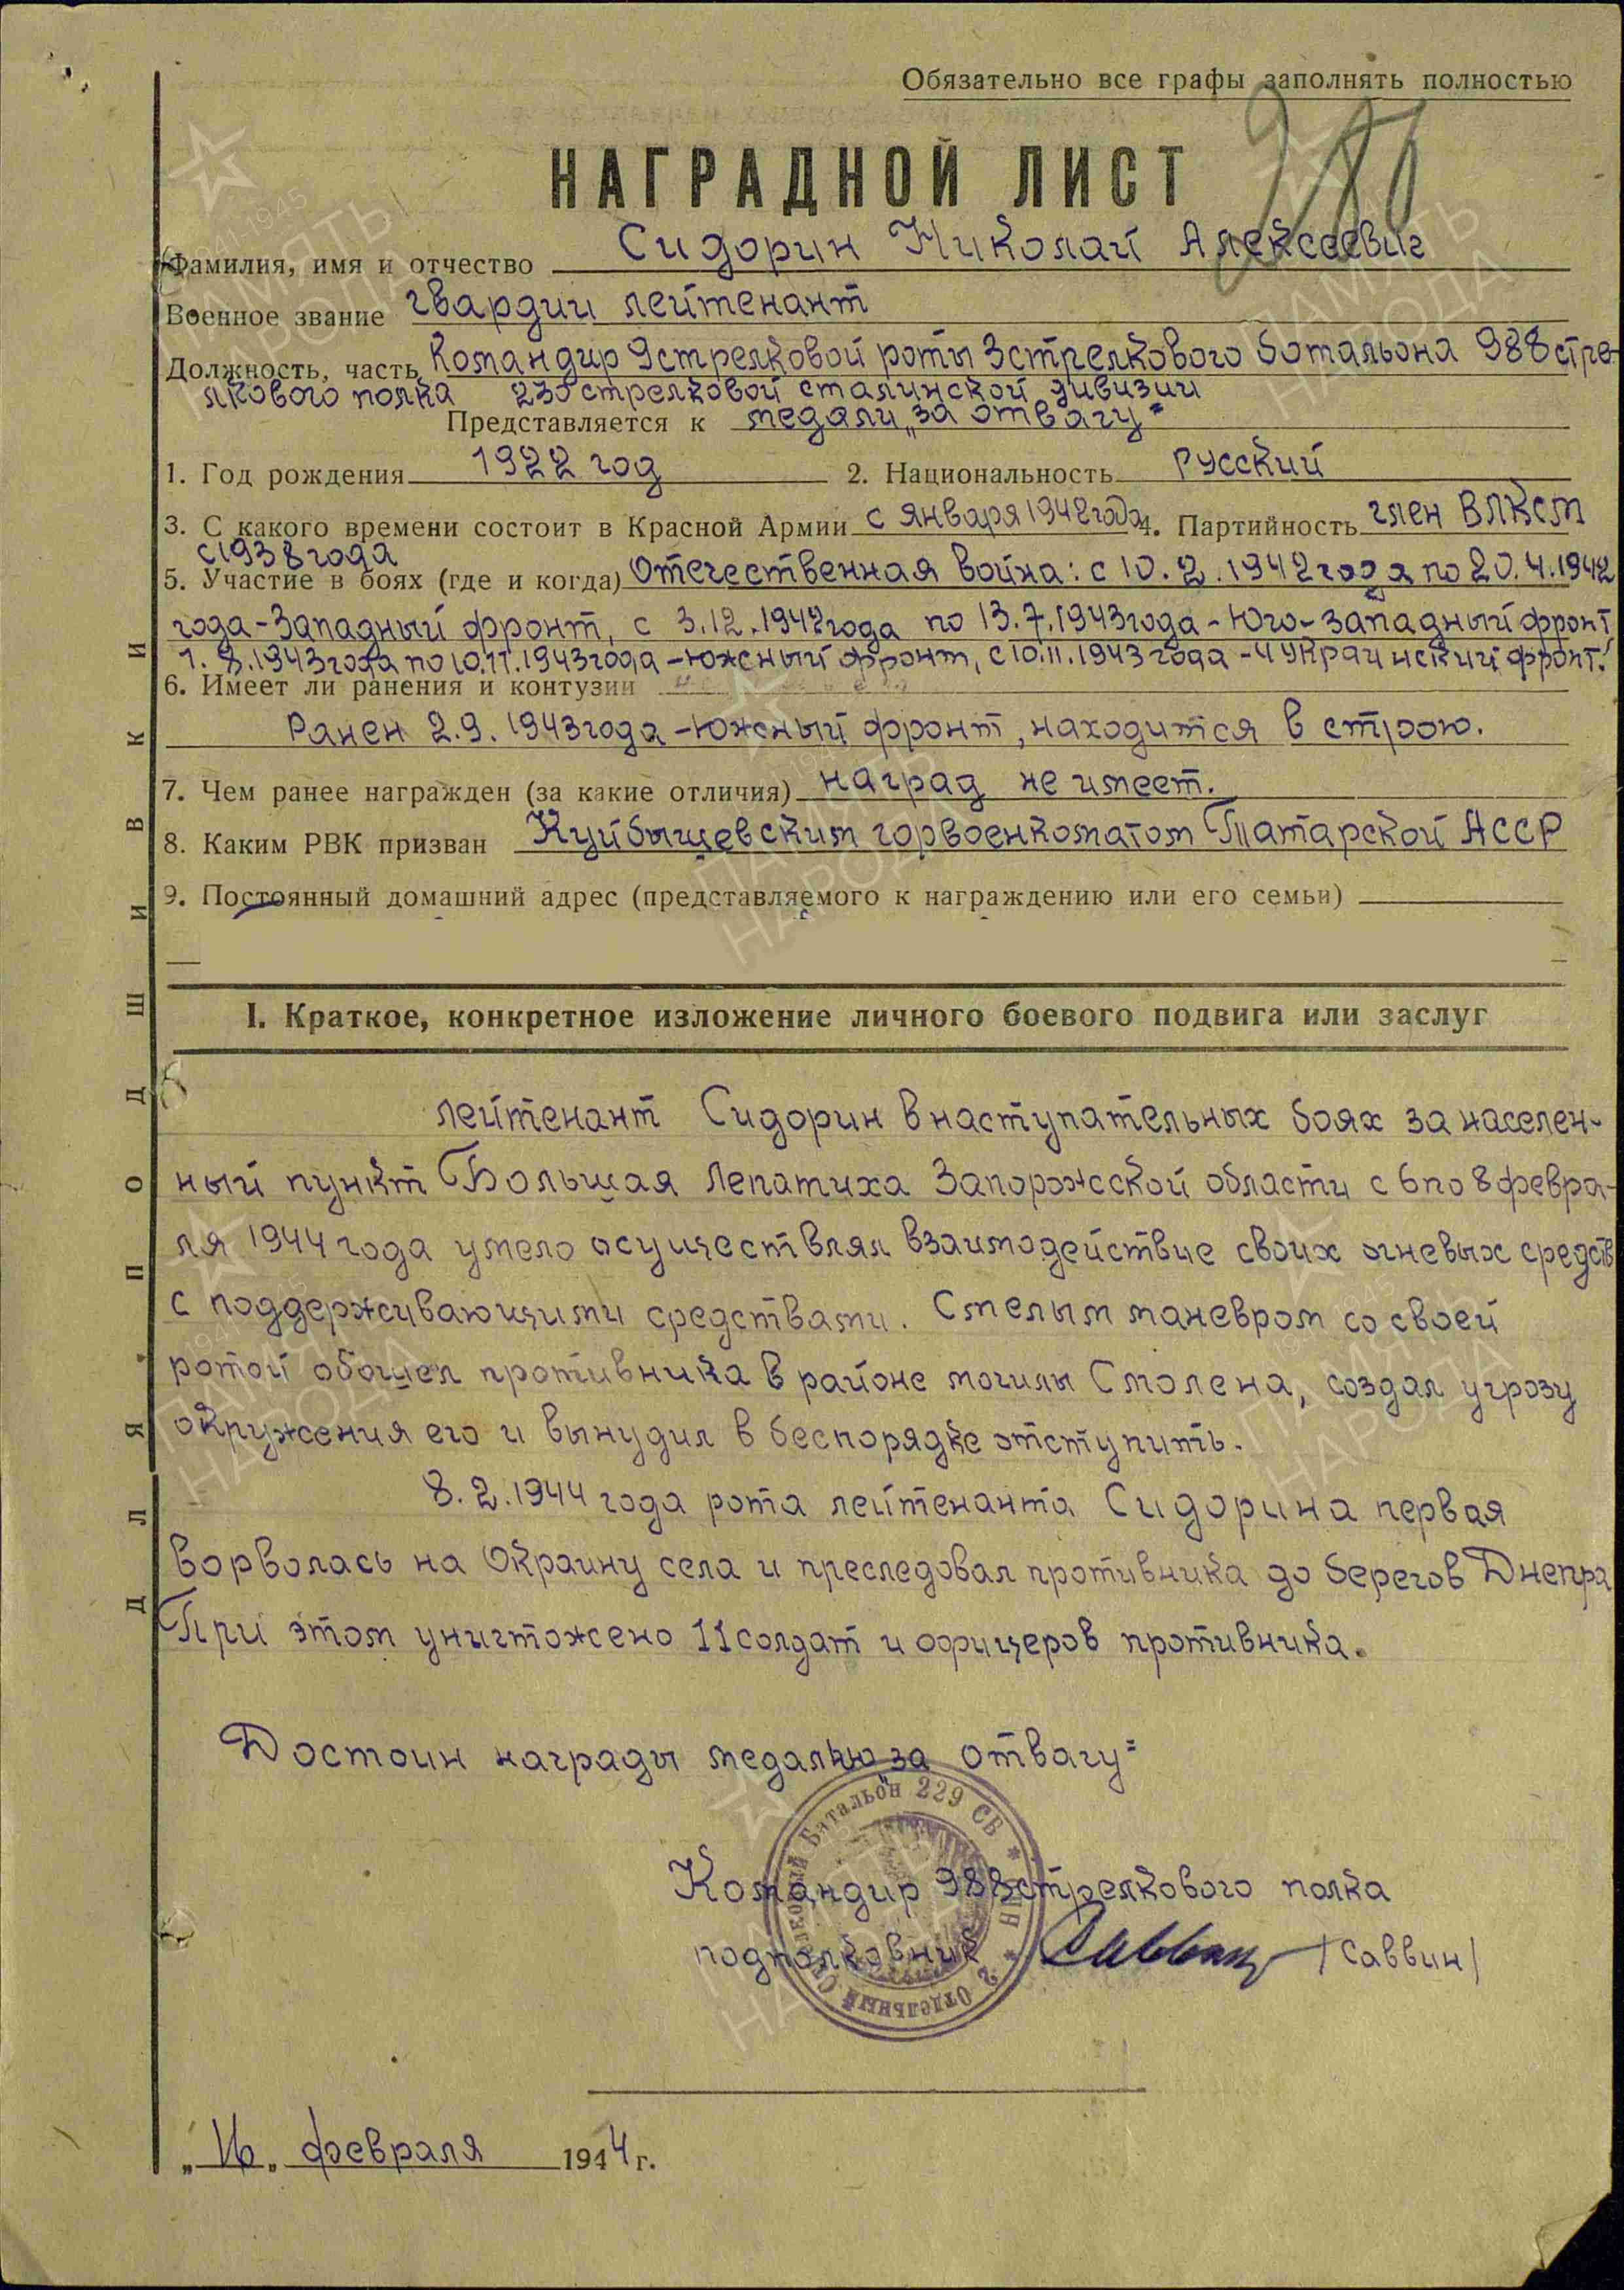 Обязательно все графы заполнять полностью
НАГРАДНОЙ ЛИСТ
Фамилия, имя и отчество Сидорин Николай Алексеевич
Военное звание гвардии лейтенант
Должность, часть Командир 9 стрелковой роты 3 стрелкового ботальона 988 стре-
лкового полка 230 стрелковой сталинской дивизии
Представляется к медали „за отвагу"
1. Год рождения 1922 год 2. Национальность русский
3. С какого времени состоит в Красной Армии с января 1942 года 4. Партийность член ВЛКСМ
с 1938 года
5. Участие в боях (где и когда) Отечественная война: с 10.2.1942 года по 20.4.1942
года - Западный фронт, с 3.12.1942 года по 13.7.1943 года - Юго-западный фронт
1.8.1943 года по 10.11.1943 года - Южный фронт, с 10.11.1943 года - 4 Украинский фронт.
6. Имеет ли ранения и контузии
Ранен 2.9.1943 года - Южный фронт, находится в строю.
7. Чем ранее награжден (за какие отличия) наград не имеет.
8. Каким РВК призван Куйбышевским горвоенкоматом Татарской АССР
9. Постоянный домашний адрес (представляемого к награждению или его семьи)
I. Краткое, конкретное изложение личного боевого подвига или заслуг
лейтенант Сидорин в наступательных боях за населен-
ный пункт Большая Лепатиха Запорожсской области с 6 по 8 февра-
ля 1944 года умело осуществлял взаимодействие своих огневых средств
с поддерживающими средствами. Смелым маневром со своей
ротой обошел противника в районе могилы Смолена, создал угрозу
окружения его и вынудил в беспорядке отступить.
8.2.1944 года рота лейтенанта Сидорина первая
ворволась на окраину села и преследовал противника до берегов Днепра
При этом уничтожено 11 солдат и офицеров противника.
Достоин награды медалью „за отвагу"
Командир 988 стрелкового полка
подполковник /Саввин/
Отдельный Стрелковый Батальон 229 СБ
„16" февраля 1944 г.
ДЛЯ ПОДШИВКИ
ПАМЯТЬ НАРОДА
1941-1945